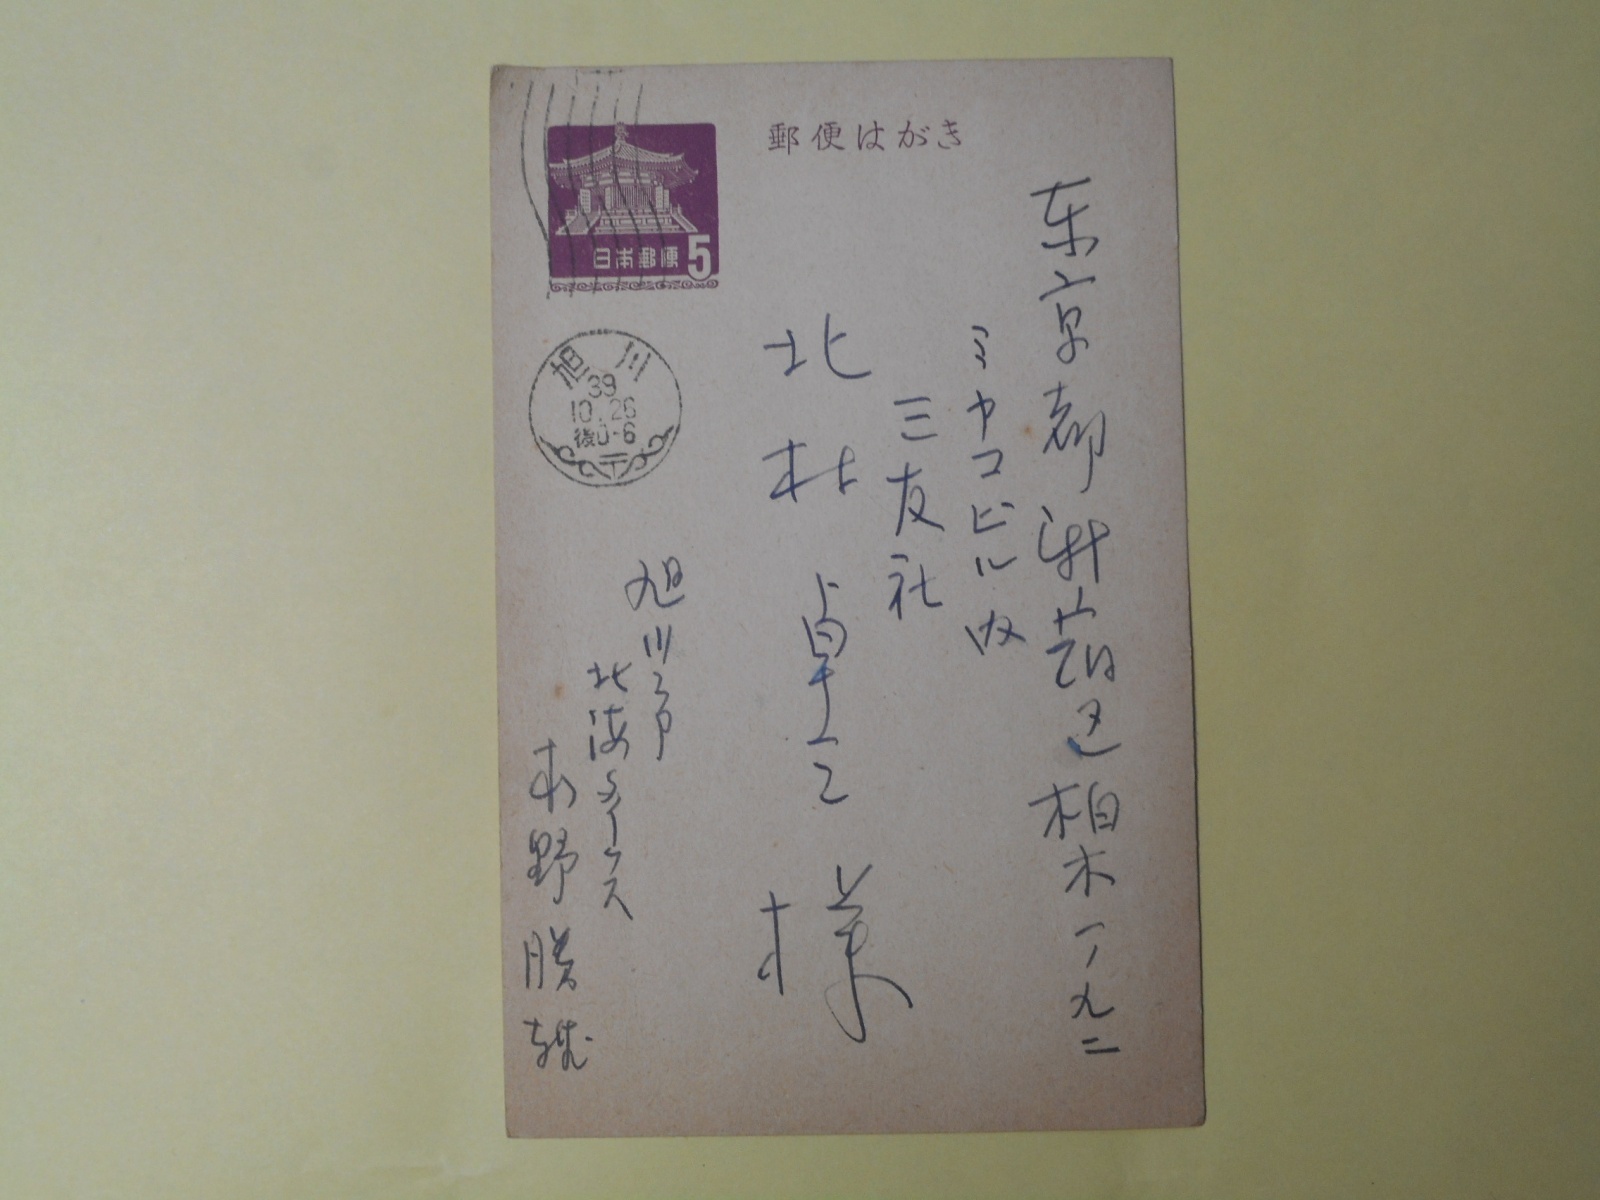 郵便はがき
日本郵便 5
旭川
39
10.26
後0-6
東京都新宿区柏木一ノ九二
ミヤコビル内
三友社
北村貞三様
旭川市
北海タイムス
木野勝